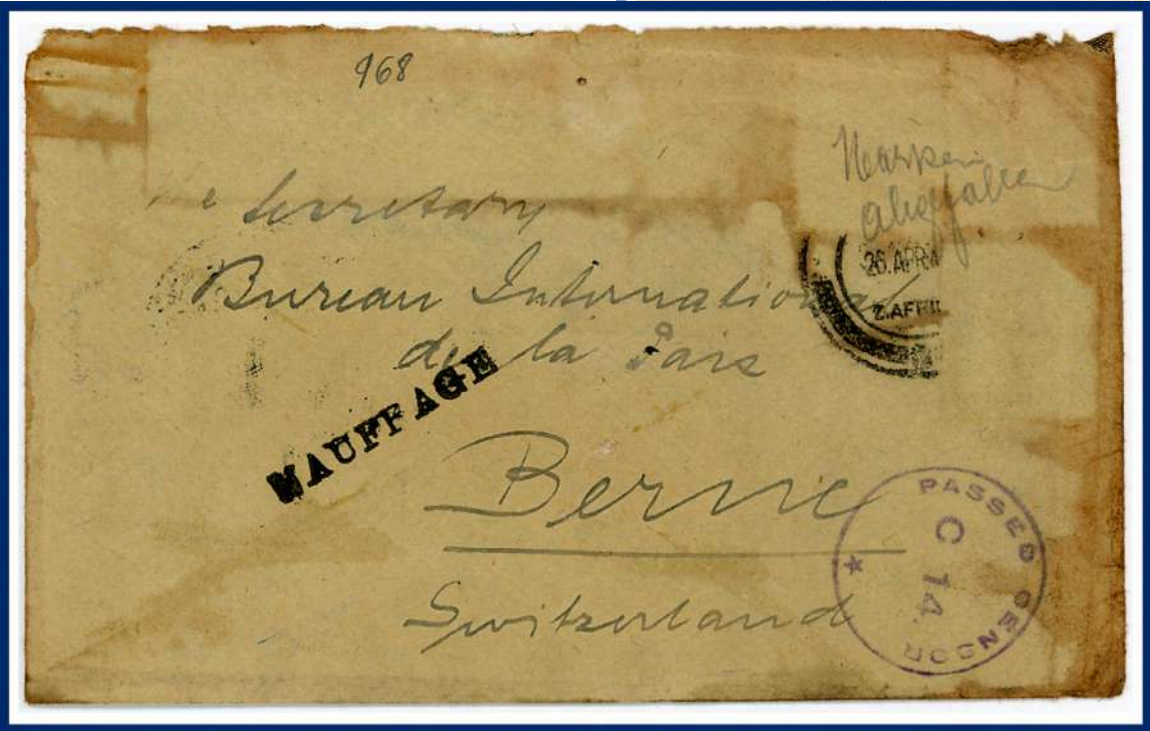 968
Marken
abgefallen
Secretary
26.APR
Z.AFRI
Bureau International
de la Paix
NAUFFAGE
Berne
Switzerland
PASSED CENSOR
C 14.